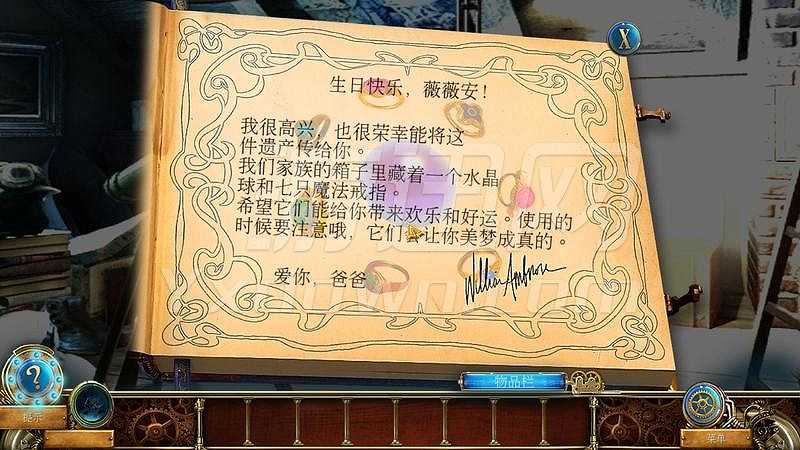 X
生日快乐，薇薇安！
我很高兴，也很荣幸能将这
件遗产传给你。
我们家族的箱子里藏着一个水晶
球和七只魔法戒指。
希望它们能给你带来欢乐和好运。使用的
时候要注意哦，它们会让你美梦成真的。
爱你，爸爸
William Ambrose
物品栏
?
提示
菜单